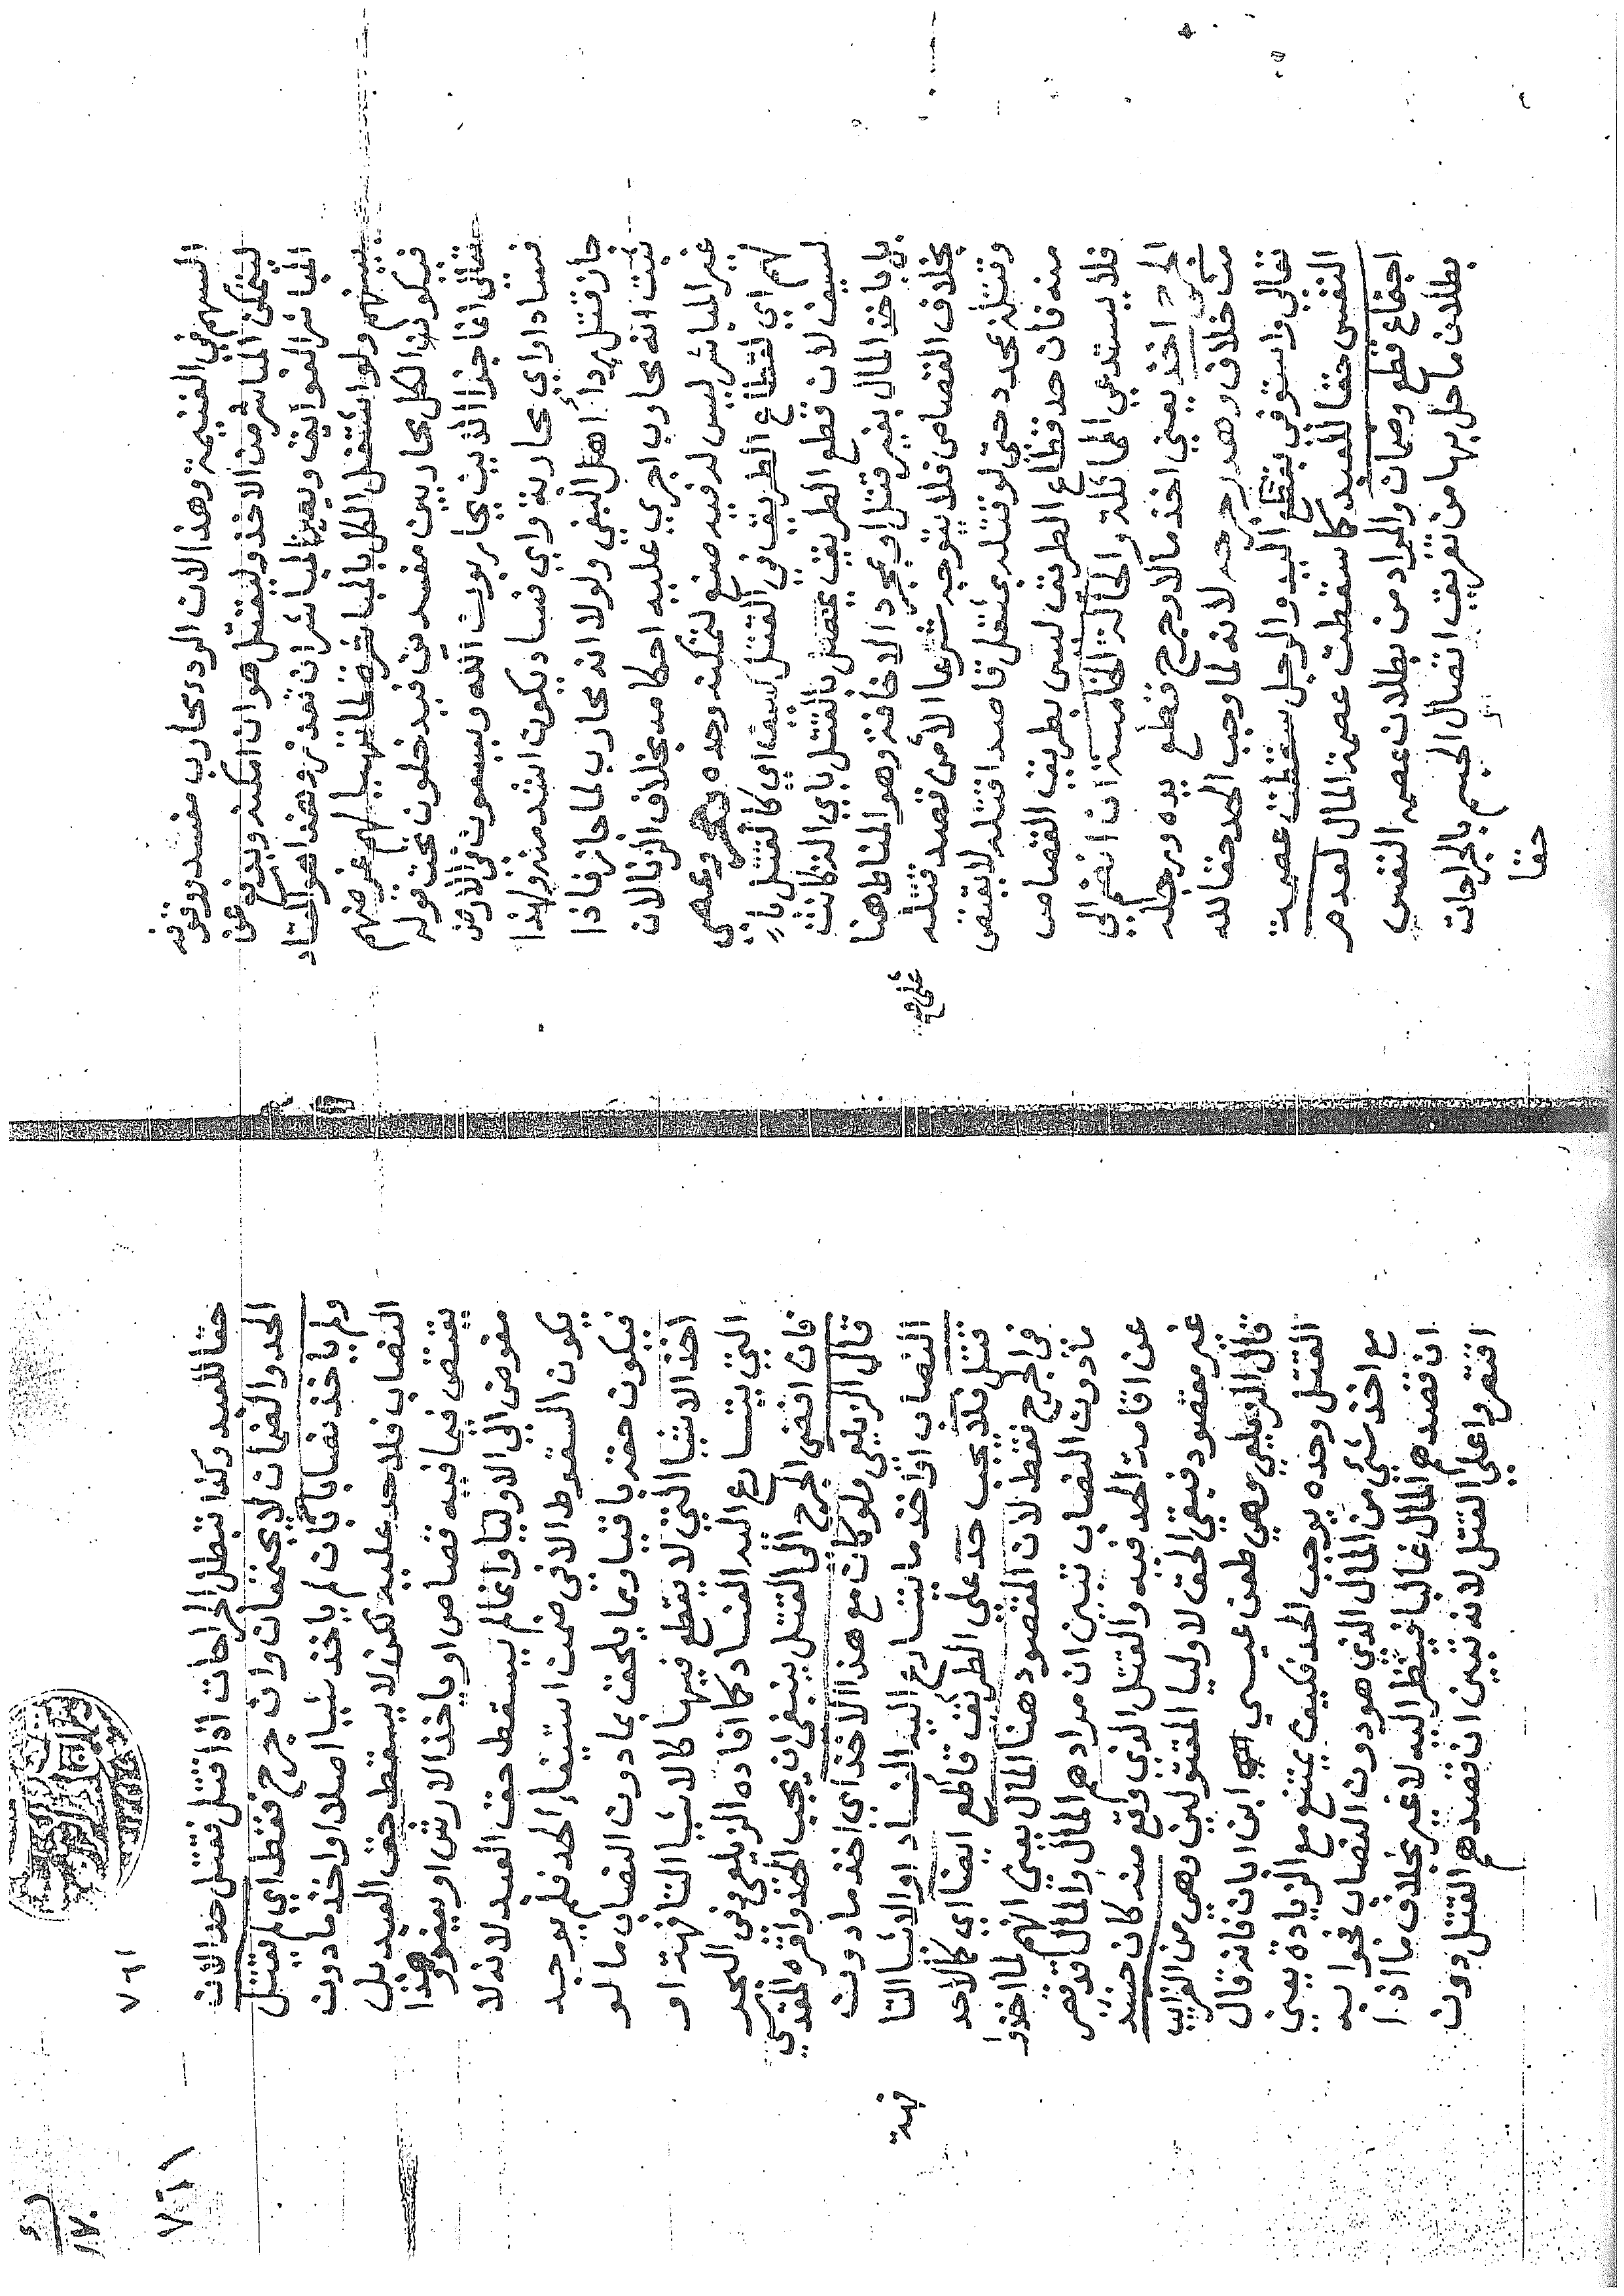 السهم في الغنيمة وهذا لان الردء محارب مفسد ووقوفه
ليتمكن المباشر من الاخذ وليقتل هو ان امكنه ويدفع عن
المباشر العوايق ويعين المباشر ان تعذر هذا هو المعتاد
بينهم ولو اشتغل الكل بالمباشرة لما تهيا لهم غرضهم
فيكون الكل محاربين مفسدين فيدخلون تحت قوله
تعالى انما جزا الذين يحاربون الله ويسعون في الارض
فسادا واي محاربة واي فساد يكون اشد منه ولهذا
جاز قتل ردا اهل البغي ولولا انه محارب لما جاز فاذا
ثبت انه محارب اجري عليه احكامه بخلاف الزنا لان
غير المباشر ليس له فيه صنع لتمكنه وحده وعصى
لهم اي لقطاع الطريق في القتل كسيف اي كالقتل با
لسيف لان قطع الطريق يحصل بالقتل باي الة كانت
بل باخذ المال بغير قتل او بمجرد الاخافة وهو المناط هنا
بخلاف القصاص فلا يتوجه شرعا الا من تعمد قتله
وقتله بمحدد حتى لو قتله بمثقل قاصدا قتله لا يقتص
منه فان حد قطاع الطريق ليس بطريق القصاص
فلا يستدعي المماثلة والحالة الخامسة ان انضم الى
الجرح اخذ يعني اخذ مالا وجرح قطع يده ورجله
من خلاف وهدر جرحه لانه لما وجب الحد حقا لله
تعالى واستوفي بقطع اليد والرجل سقطت عصمة
النفس حقا للعبد كما سقطت عصمة المال لعدم
اجتماع قطع وضمان والمراد من بطلان عصمه النفس
بطلان ما حل بها من تفريق اتصال الجسم بالجراحات
حقا
على
٧٦١
٧٦١
١٧٠
حقا للعبد وكذا تبطل الجراحات اذا قتل فقتل حدا لان
الحد والضمان لا يجتمعان وان جرح فقط اي لم يقتل
ولم ياخذ نصابا بان لم ياخذ شيا اصلا او اخذ ما دون
النصاب فلا حد عليه لكن لا يسقط حق العبد بل
يقتص فيما فيه قصاص او ياخذ الارش او يعفو وهذا
مفوض الى الاوليا وانما لم يسقط حق العبد لانه لا
يكون السقوط الا في ضمن استيفاء الحد فلم يوجد
فيكون حقه باقيا ومما يلحق بما دون النصاب ما لو
اخذ الاشيا التي لا يقطع فيها كالاشيا التافهة او
التي يتسارع اليه الفساد كما افاده الزيلعي في البحر
فان افضى الجرح الى القتل ينبغي ان يجب الحد واقره المقدسي
قال الزيلعي ولو كان مع هذا الاخذ اي اخذ ما دون
النصاب او اخذ ما يتسارع اليه الفساد او الاشيا التا
فهة
قتل فلا يجب حد على الطريق قاطع ايضا اي كالاخذ
في الجرح فقط لان المقصود هنا المال يعني انهم لما اخذوا
ما دون النصاب تبين ان مرادهم المال والمال قد قصر
عن اقامة الحد فيه والقتل الذي وقع منه كان حينئذ
غير مقصود فيبقى الحق لاوليا المقتولين وهي من الغرايب
قال الزيلعي وهي طعن عيسى ابن ابان فانه قال
القتل وحده يوجب الحد فكيف يمتنع مع الزيادة يعني
مع اخذ شي من المال الذي هو دون النصاب فجوابه
ان قصدهم المال غالبا فينظر اليه لا غير بخلاف ما اذا
اقتصروا على القتل لانه تبين ان قصدهم القتل دون